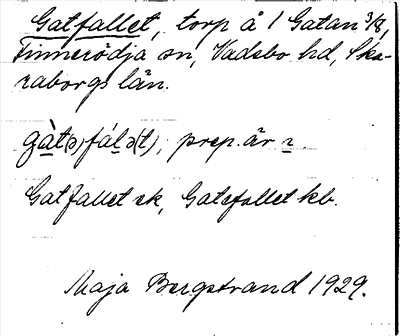 Gatfallet, torp å 1 Gatan 3/8,
Finnerödja sn, Vadsbo hd, Ska-
raborgs län.
gàt(ə)fál ə(t), prep. är
Gatfallet ek, Gatefallet kb.
Maja Bergstrand 1929.